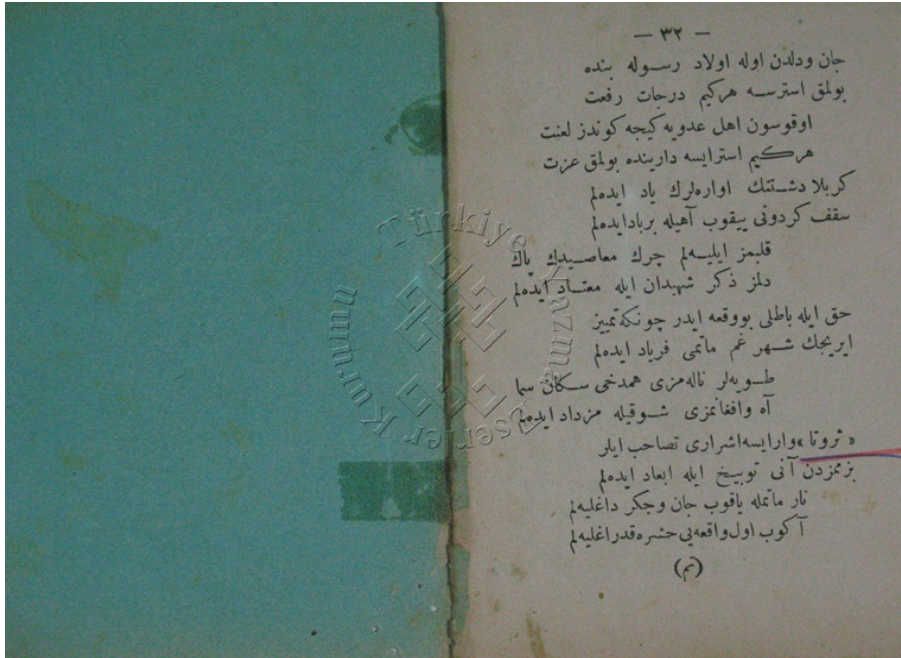 — ٣٢ —
جان ودلدن اوله اولاد رسوله بنده
بولمق استرسه هركیم درجات رفعت
اوقوسون اهل عدویه كیجه كوندز لعنت
هركیم استرایسه دارینده بولمق عزت
كربلا دشتنك اواره‌لرك یاد ایده‌لم
سقف كردونی ییقوب آهیله بربادایده‌لم
قلبمز ایلیه‌لم چرك معاصیدك پاك
دلمز ذكر شهیدان ایله معتاد ایده‌لم
حق ایله باطلی بووقعه ایدر چونكه تمییز
ایریجك شهر غم ماتمی فریاد ایده‌لم
طویه‌لر ناله‌مزی همدخی سكان سما
آه وافغانمزی شوقیله مزداد ایده‌لم
« ثروتا » وارایسه اشراری تصاحب ایلر
بزمزدن آنی توبیخ ایله ابعاد ایده‌لم
نار ماتمله یاقوب جان وجكر داغلیه‌لم
آكوب اول واقعه‌یی حشره قدر اغلیه‌لم
(م)
Türkiye Yazma Eserler Kurumu